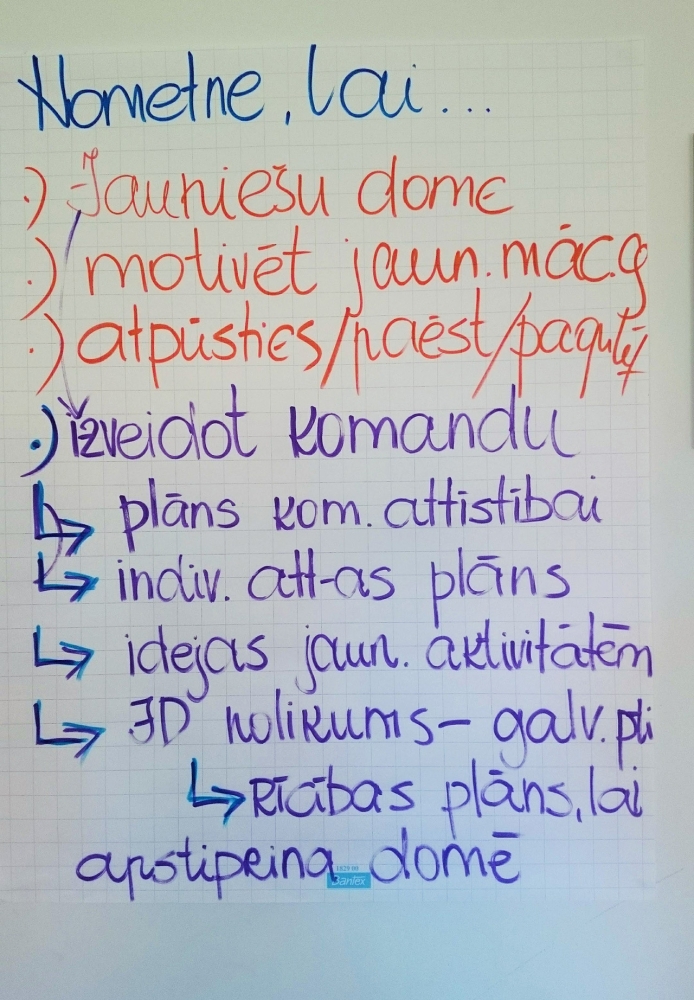 Nometne, lai...
·) Jauniešu dome
·) motivēt jaun. māc.g
·) atpūsties/paēst/pagulēt
·) izveidot komandu
↳ plāns kom. attīstībai
↳ indiv. att-as plāns
↳ idejas jaun. aktivitātēm
↳ JD nolikums – galv. pti
↳ Rīcības plāns, lai
apstiprina domē
Bantex